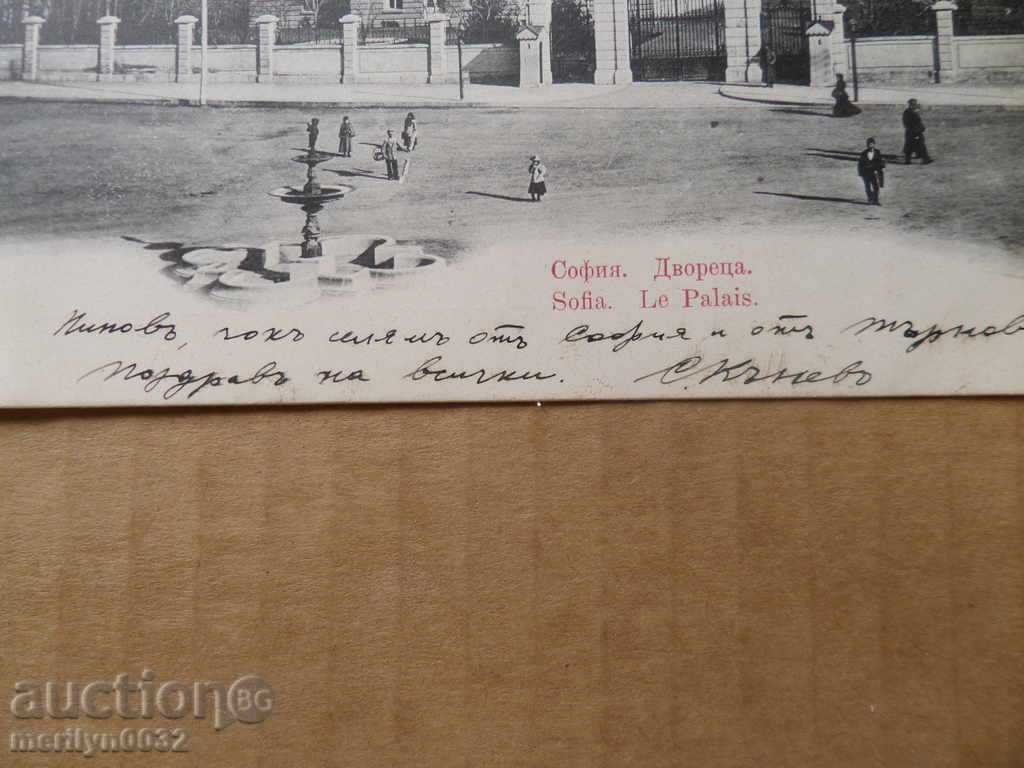 София. Двореца.
Sofia. Le Palais.
от София и отъ Търнов
Поздравъ на всички. С. Къневъ
auctionBG
merilyn0032